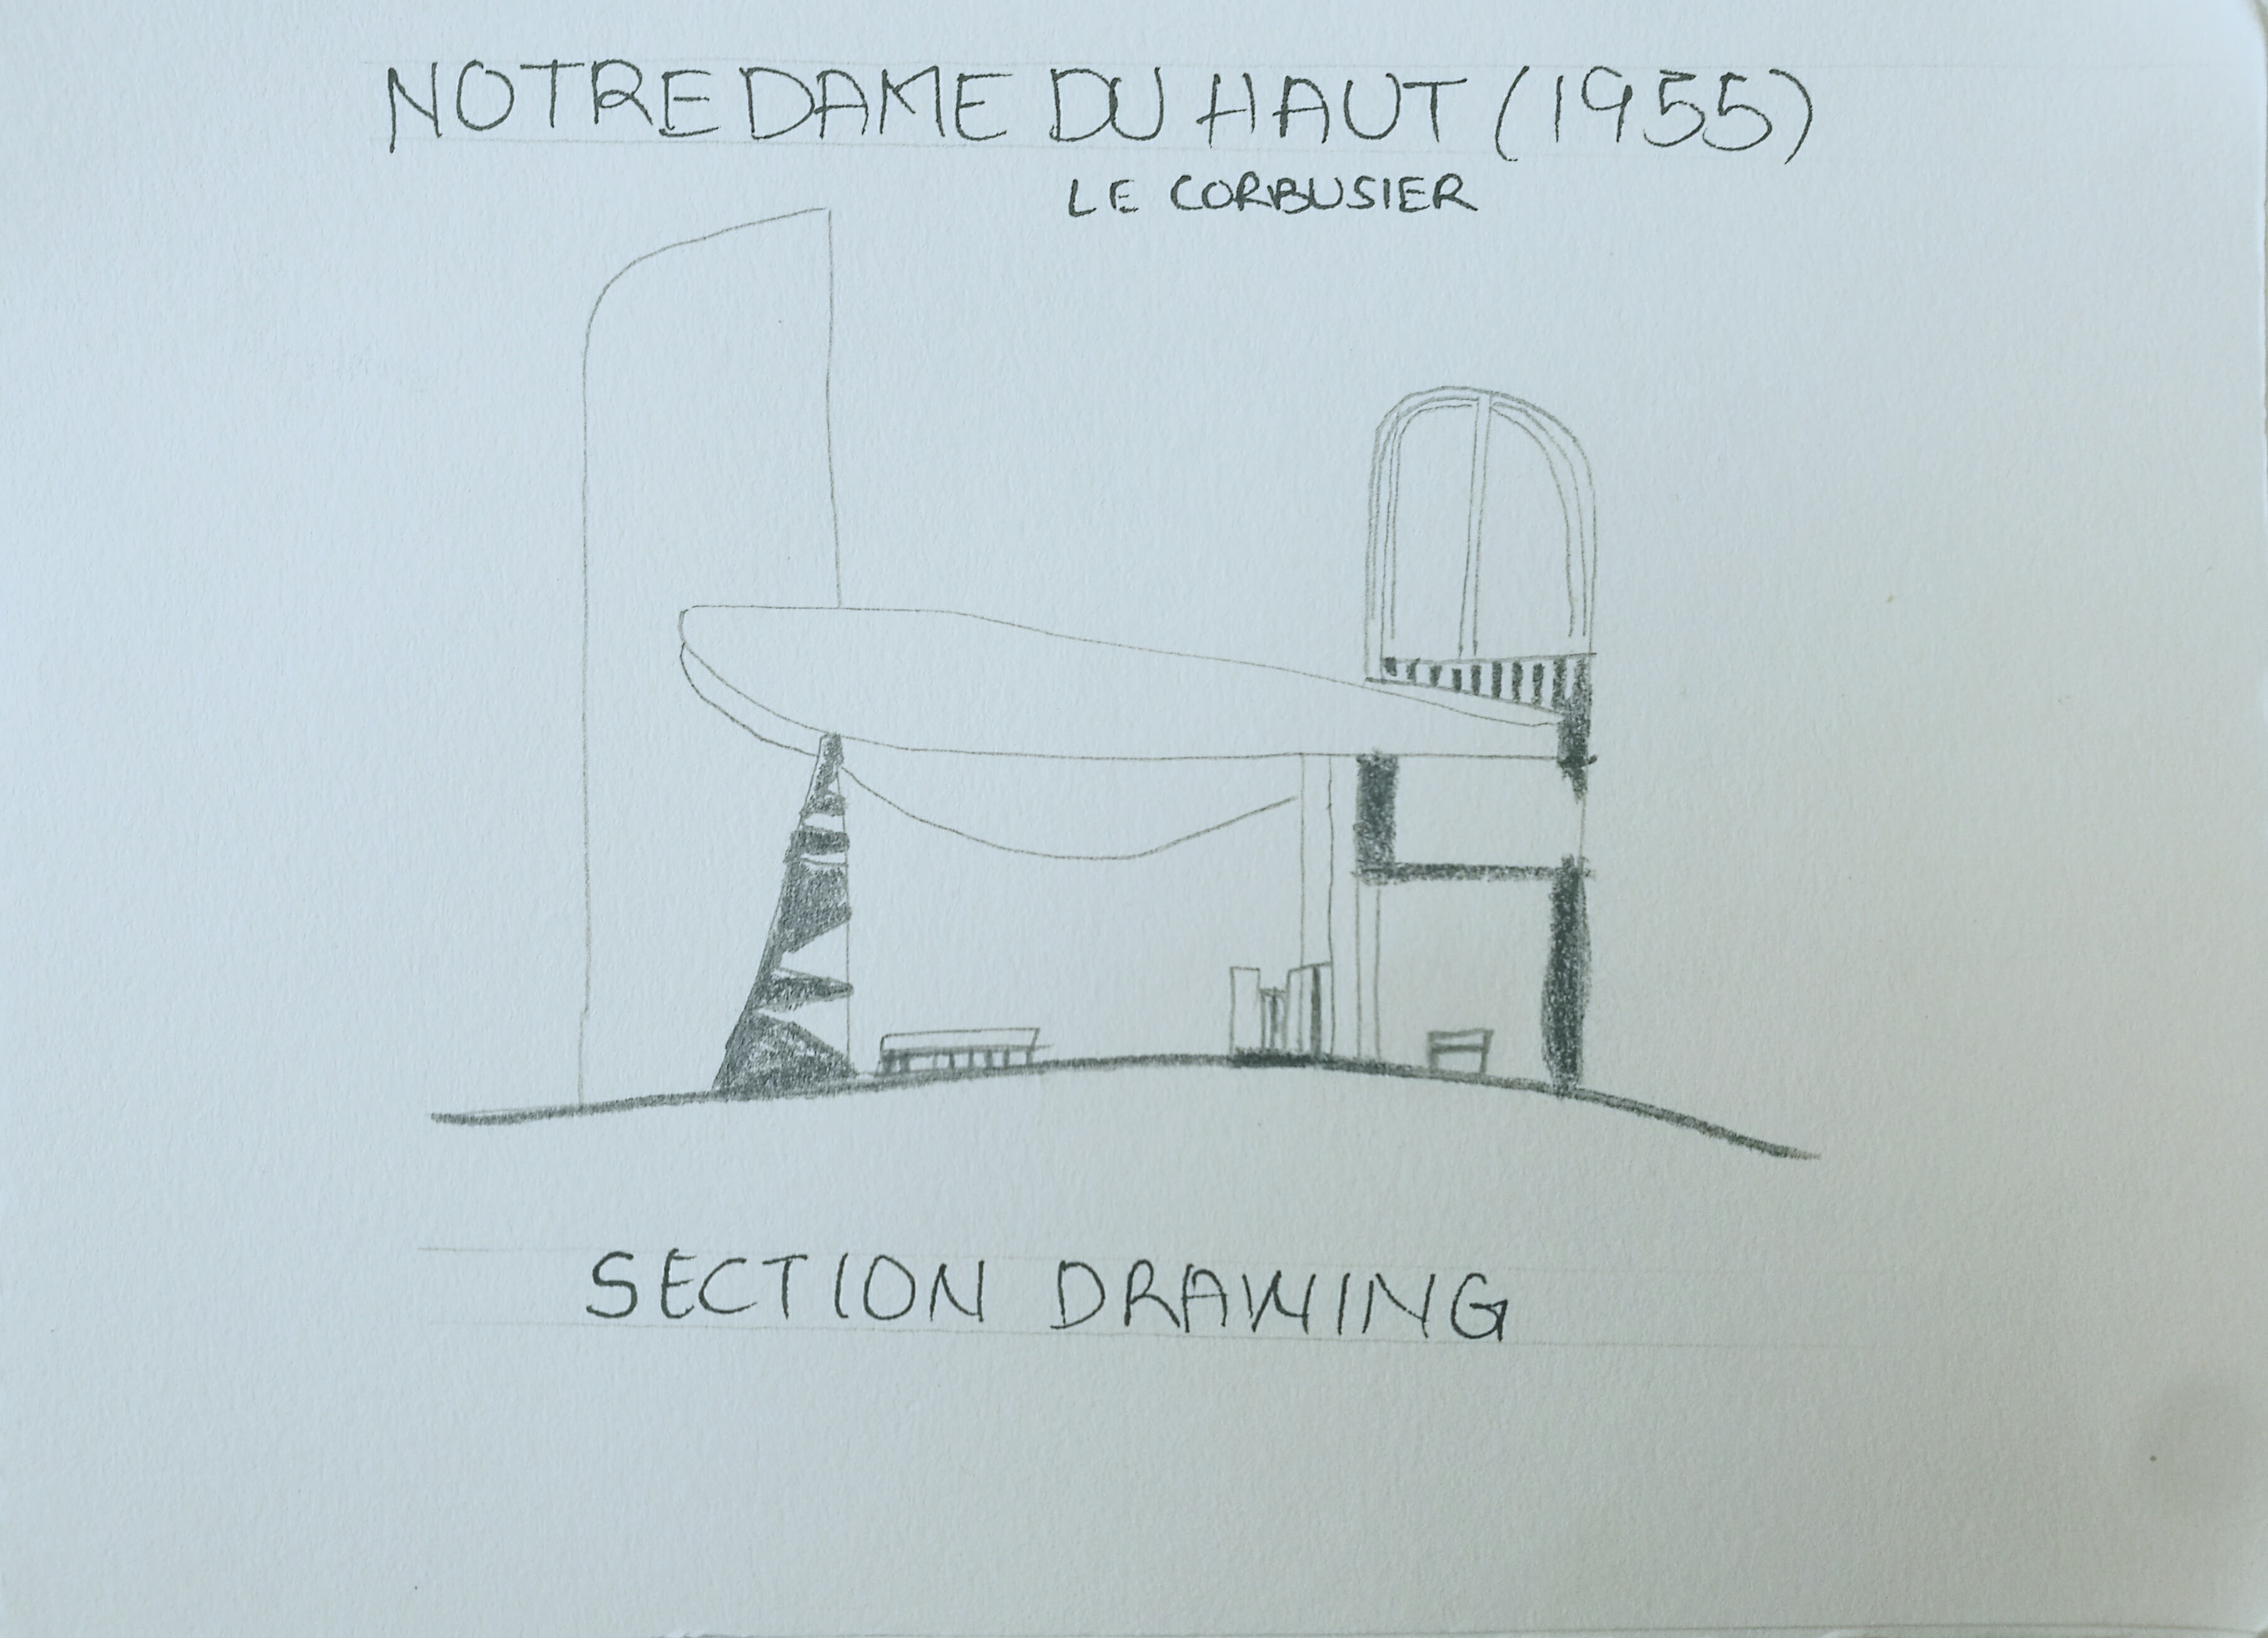 NOTRE DAME DU HAUT (1955)
LE CORBUSIER
SECTION DRAWING